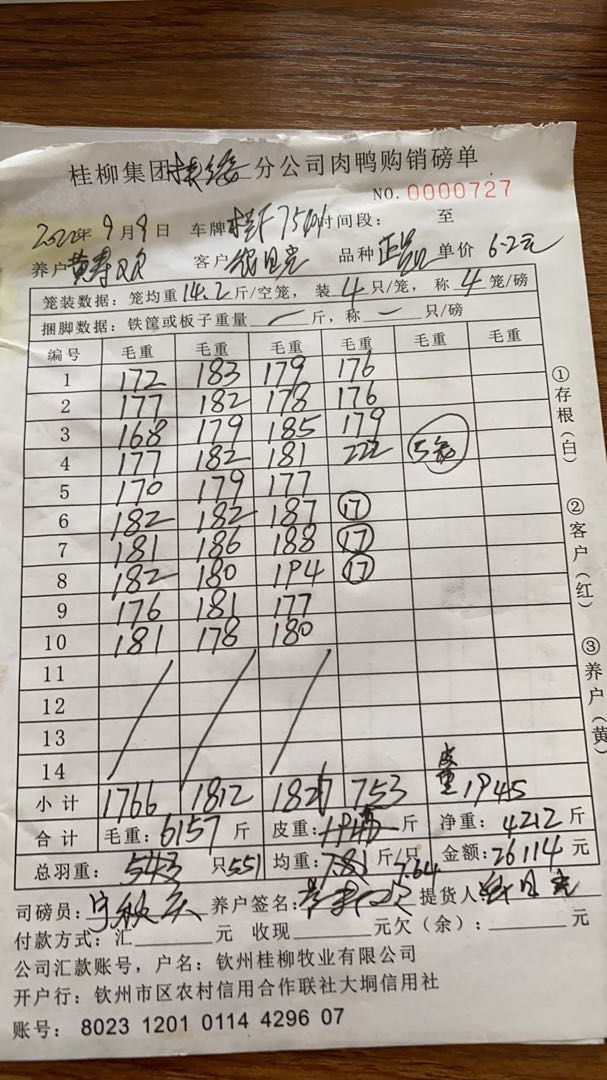 桂柳集团 分公司肉鸭购销磅单
NO.0000727
2022年9月9日 车牌 时间段: 至
养户 黄寿 客户 品种 单价 6.2元
笼装数据: 笼均重14.2斤/空笼, 装4只/笼, 称4笼/磅
捆脚数据: 铁筐或板子重量 一 斤, 称 一 只/磅
编号 毛重 毛重 毛重 毛重 毛重 毛重
1 172 183 179 176
2 177 182 178 176
3 168 179 185 179
4 177 182 181 222
5 170 179 177
6 182 182 187 17
7 181 186 188 17
8 182 180 194 17
9 176 181 177
10 181 178 180
11
12
13
14
小计 1766 1812 753 皮重 1945
合计 毛重: 6157斤 皮重: 斤 净重: 4212斤
总羽重: 543只551 均重: 7.81斤/只 7.64 金额: 26114元
司磅员: 养户签名: 提货人
付款方式: 汇 元 收现 元欠(余): 元
公司汇款账号, 户名: 钦州桂柳牧业有限公司
开户行: 钦州市区农村信用合作联社大垌信用社
账号: 8023 1201 0114 4296 07
①存根(白)
②客户(红)
③养户(黄)